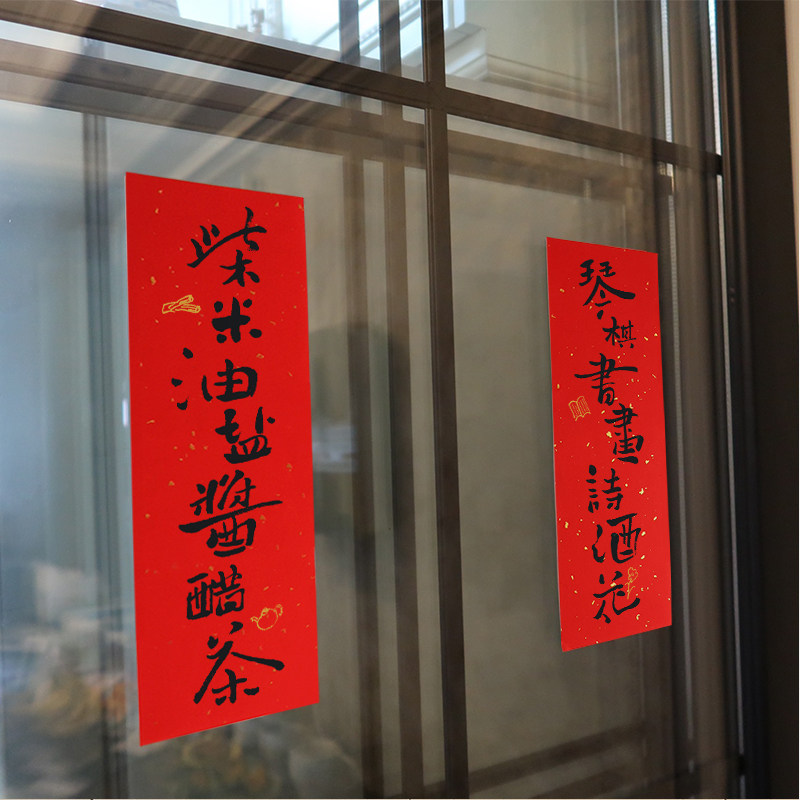 琴棋書畫詩酒花
柴米油盐醬醋茶